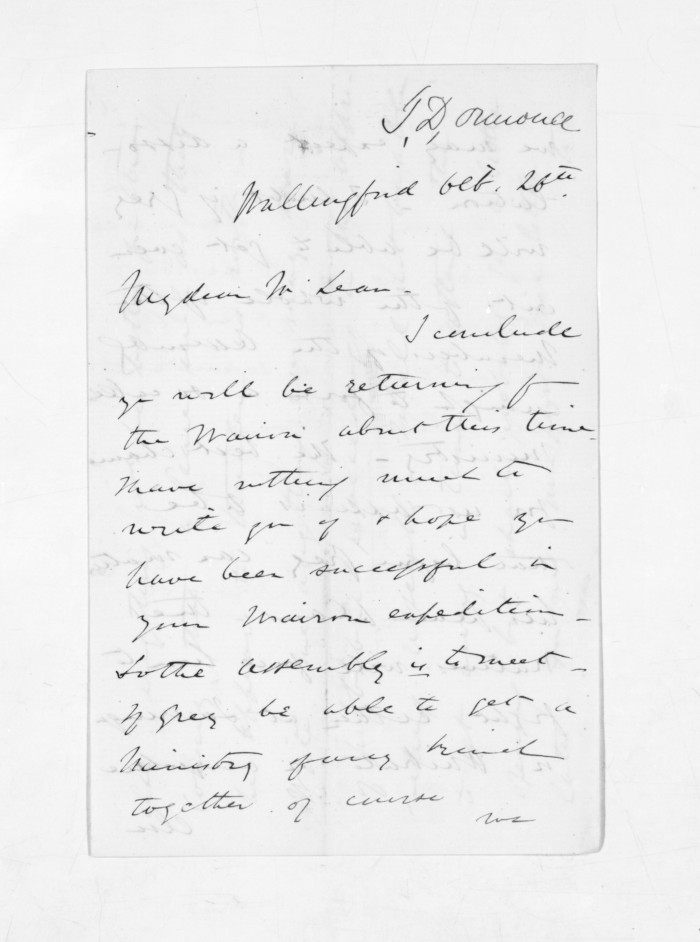 J, D, Ormond
Wallingford Oct. 26th
My dear McLean -
I conclude
yr will be returning fr
the Wairoa about this time -
I have nothing much to
write you of & hope yr
have been successful in
your Wairoa expedition -
So the Assembly is to meet -
If Grey be able to get a
Ministry of any kind
together of course
we